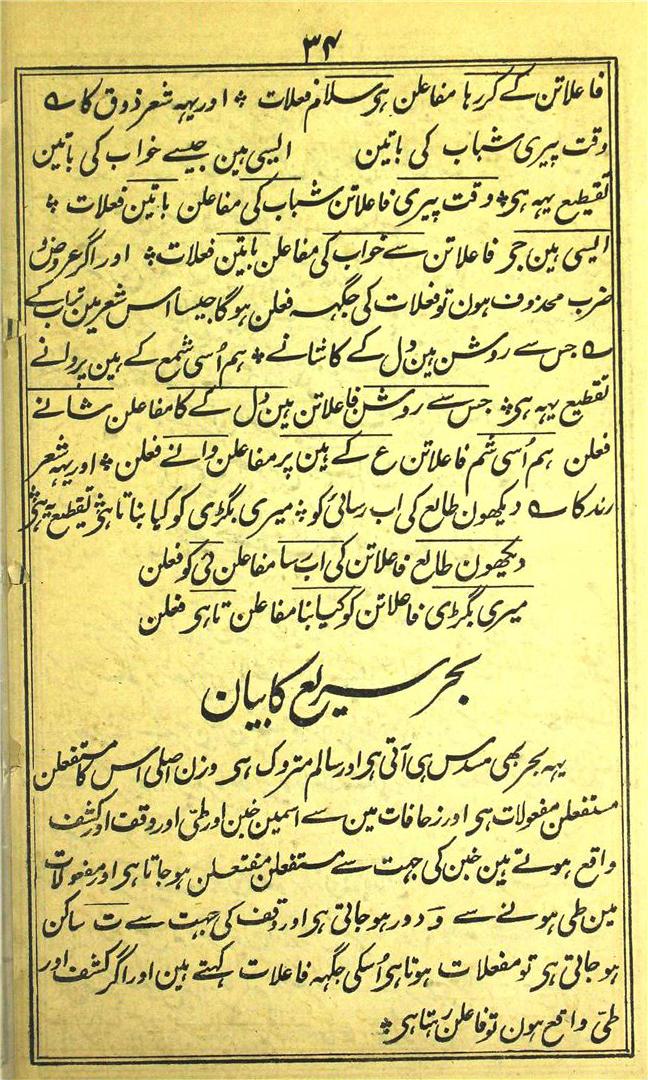 ۳۴
فاعلاتن کے کررہا مفاعلن ہی سلام فعلات ؞ اور یہہ شعر ذوق کا ؎
وقت پیری شباب کی باتین ایسی ہین جیسے خواب کی باتین
تقطیع یہہ ہی ؞ وقت پیری فاعلاتن شباب کی مفاعلن باتین فعلات ؞
ایسی ہین جی فاعلاتن سے خواب کی مفاعلن باتین فعلات ؞ اور اگر عروض و
ضرب محذوف ہون تو فعلات کی جگہہ فعلن ہوگا جیسا اس شعر مین تراب کے
؎ جس سے روشن ہین دل کے کاشانے ؞ ہم اُسی شمع کے ہین پروانے
تقطیع یہہ ہی ؞ جس سے روشن فاعلاتن ہین دل کے کا مفاعلن شانے
فعلن ہم اُسی شم فاعلاتن ع کے ہین پر مفاعلن وانے فعلن ؞ اور یہہ شعر
رند کا ؎ دیکھون طالع کی اب رسائی کو ؞ میری بگڑی کو کیا بناتا ہی ؞ تقطیع یہ ہی ؞
دیکھون طالع فاعلاتن کی اب رسا مفاعلن ئی کو فعلن
میری بگڑی فاعلاتن کو کیا بنا مفاعلن تا ہی فعلن
بحر سریع کا بیان
یہہ بحر بھی مسدس ہی آتی ہی اور سالم متروک ہی وزن اصلی اس کا مستفعلن
مستفعلن مفعولات ہی اور زحافات مین سے اسمین خبن اور طی اور وقف اور کشف
واقع ہوتے ہین خبن کی جہت سے مستفعلن مفتعلن ہو جاتا ہی اور مفعولات
مین طی ہونے سے و دور ہو جاتی ہی اور وقف کی جہت سے ت ساکن
ہو جاتی ہی تو مفعلات ہوتا ہی اُسکی جگہہ فاعلات کہتے ہین اور اگر کشف اور
طی واقع ہون تو فاعلن رہتا ہی ؞